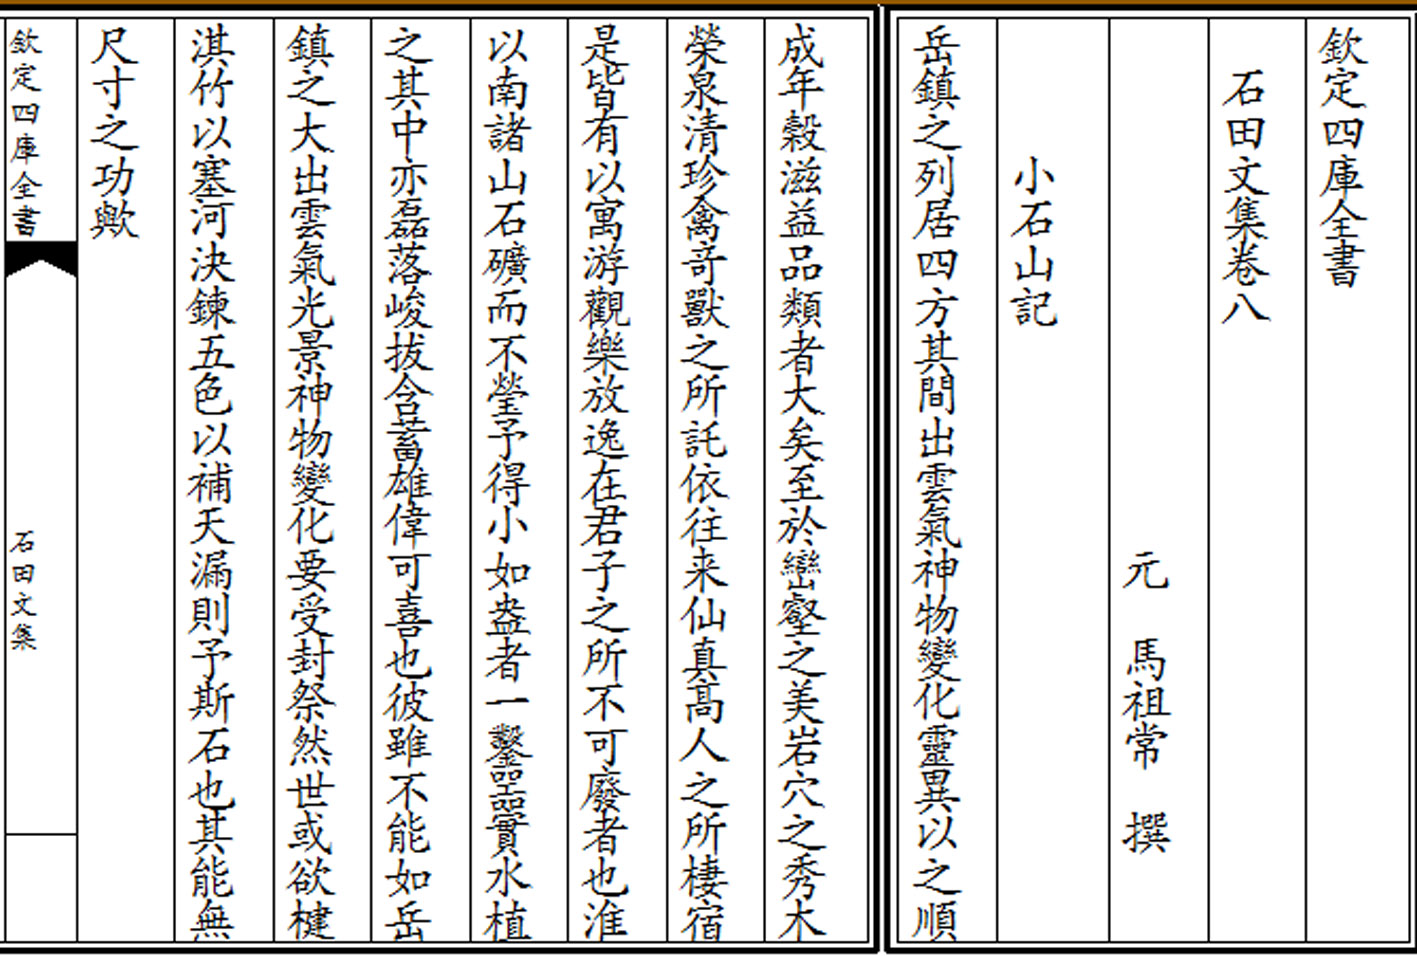 欽定四庫全書
石田文集卷八
元　馬祖常　撰
小石山記
岳鎮之列居四方其間出雲氣神物變化靈異以之順
成年穀滋益品類者大矣至於巒壑之美岩穴之秀木
榮泉清珍禽竒獸之所託依往来仙真髙人之所棲宿
是皆有以寓游觀樂放逸在君子之所不可廢者也淮
以南諸山石礦而不瑩予得小如盎者一鑿罌實水植
之其中亦磊落峻拔含蓄雄偉可喜也彼雖不能如岳
鎮之大出雲氣光景神物變化要受封祭然世或欲楗
淇竹以塞河決鍊五色以補天漏則予斯石也其能無
尺寸之功歟
欽定四庫全書
石田文集